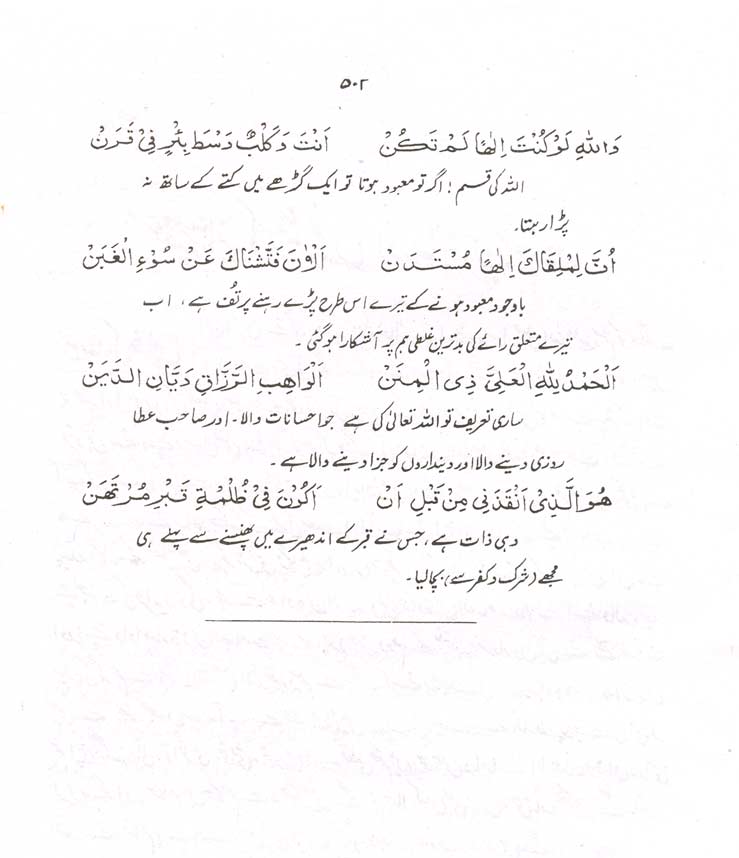 ۵۰۲
وَاللهِ لَوْ كُنْتَ اِلٰهًا لَمْ تَكُنْ اَنْتَ وَكَلْبٌ وَسَطَ بِئْرٍ فِيْ قَرَنْ
اللہ کی قسم! اگر تو معبود ہوتا تو ایک گڑھے میں کتے کے ساتھ نہ
پڑا رہتا۔
اُفٍّ لِمَلْقَاكَ اِلٰهًا مُسْتَدَنْ اَلْاٰنَ فَتَّشْنَاكَ عَنْ سُوْءِ الْغَبَنْ
باوجود معبود ہونے کے تیرے اس طرح پڑے رہنے پر تُف ہے، اب
تیرے متعلق رائے کی بدترین غلطی ہم پر آشکارا ہوگئی۔
اَلْحَمْدُ لِلّٰهِ الْعَلِيِّ ذِي الْمِنَنْ اَلْوَاهِبِ الرَّزَّاقِ دَيَّانِ الدِّيَنْ
ساری تعریف تو اللہ تعالیٰ کی ہے جو احسانات والا۔ اور صاحب عطا
روزی دینے والا اور دینداروں کو جزا دینے والا ہے۔
هُوَ الَّذِيْ اَنْقَذَنِيْ مِنْ قَبْلِ اَنْ اَكُوْنَ فِيْ ظُلْمَةِ قَبْرٍ مُرْتَهَنْ
وہی ذات ہے، جس نے قبر کے اندھیرے میں پھنسنے سے پہلے ہی
مجھے (شرک و کفر سے) بچالیا۔